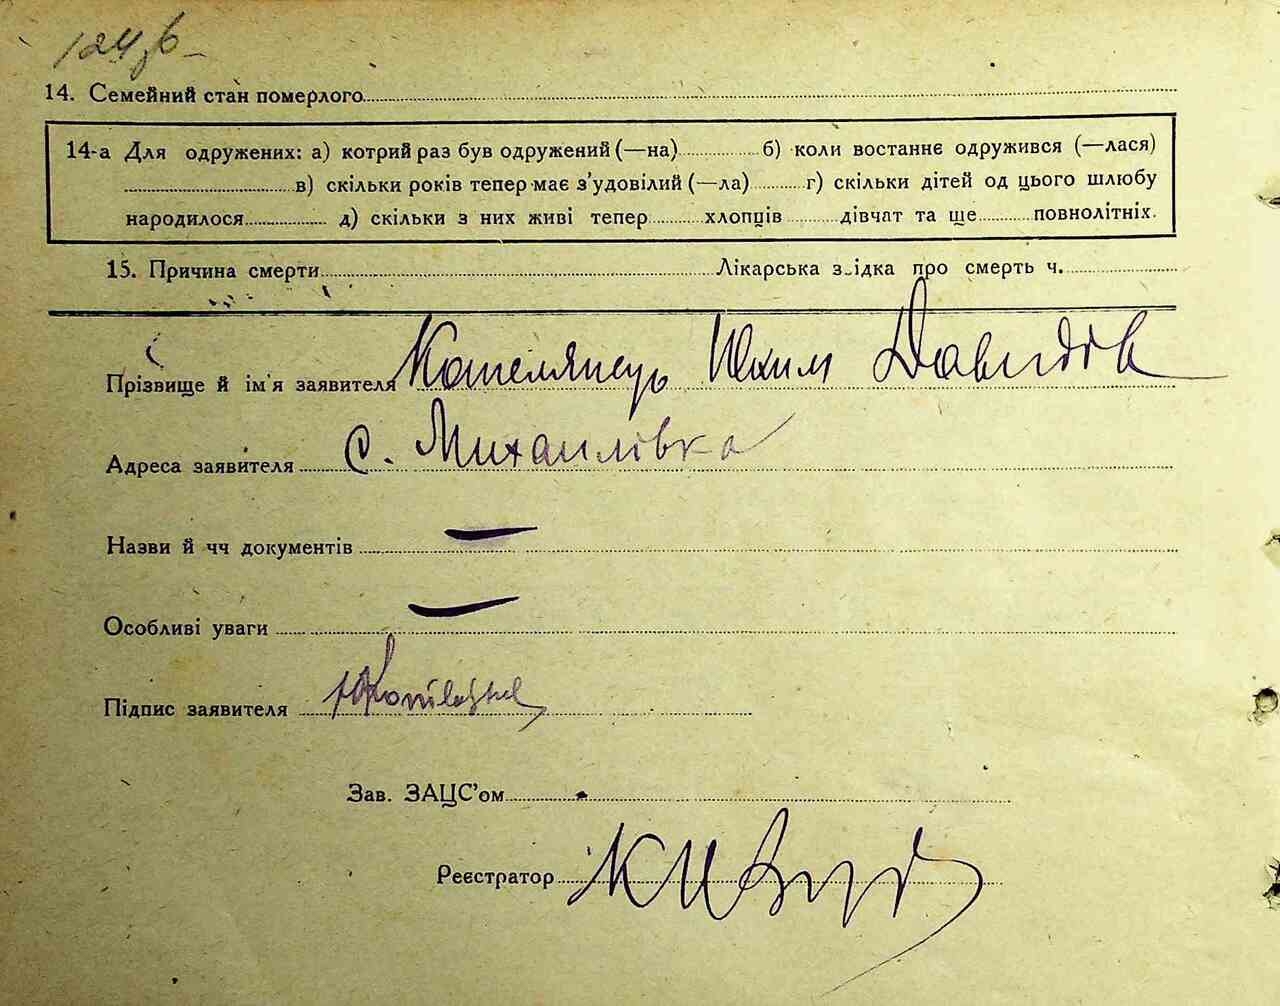 124
14. Семейний стан померлого
14-а Для одружених: а) котрий раз був одружений (—на) б) коли востаннє одружився (—лася)
в) скільки років тепер має з'удовілий (—ла) г) скільки дітей од цього шлюбу
народилося д) скільки з них живі тепер хлопців дівчат та ще повнолітніх.
15. Причина смерти Лікарська з ідка про смерть ч.
Прізвище й ім'я заявителя Кошелянець Юхим Давидів
Адреса заявителя с. Михайлівка
Назви й чч документів —
Особливі уваги —
Підпис заявителя
Зав. ЗАЦС'ом
Реєстратор